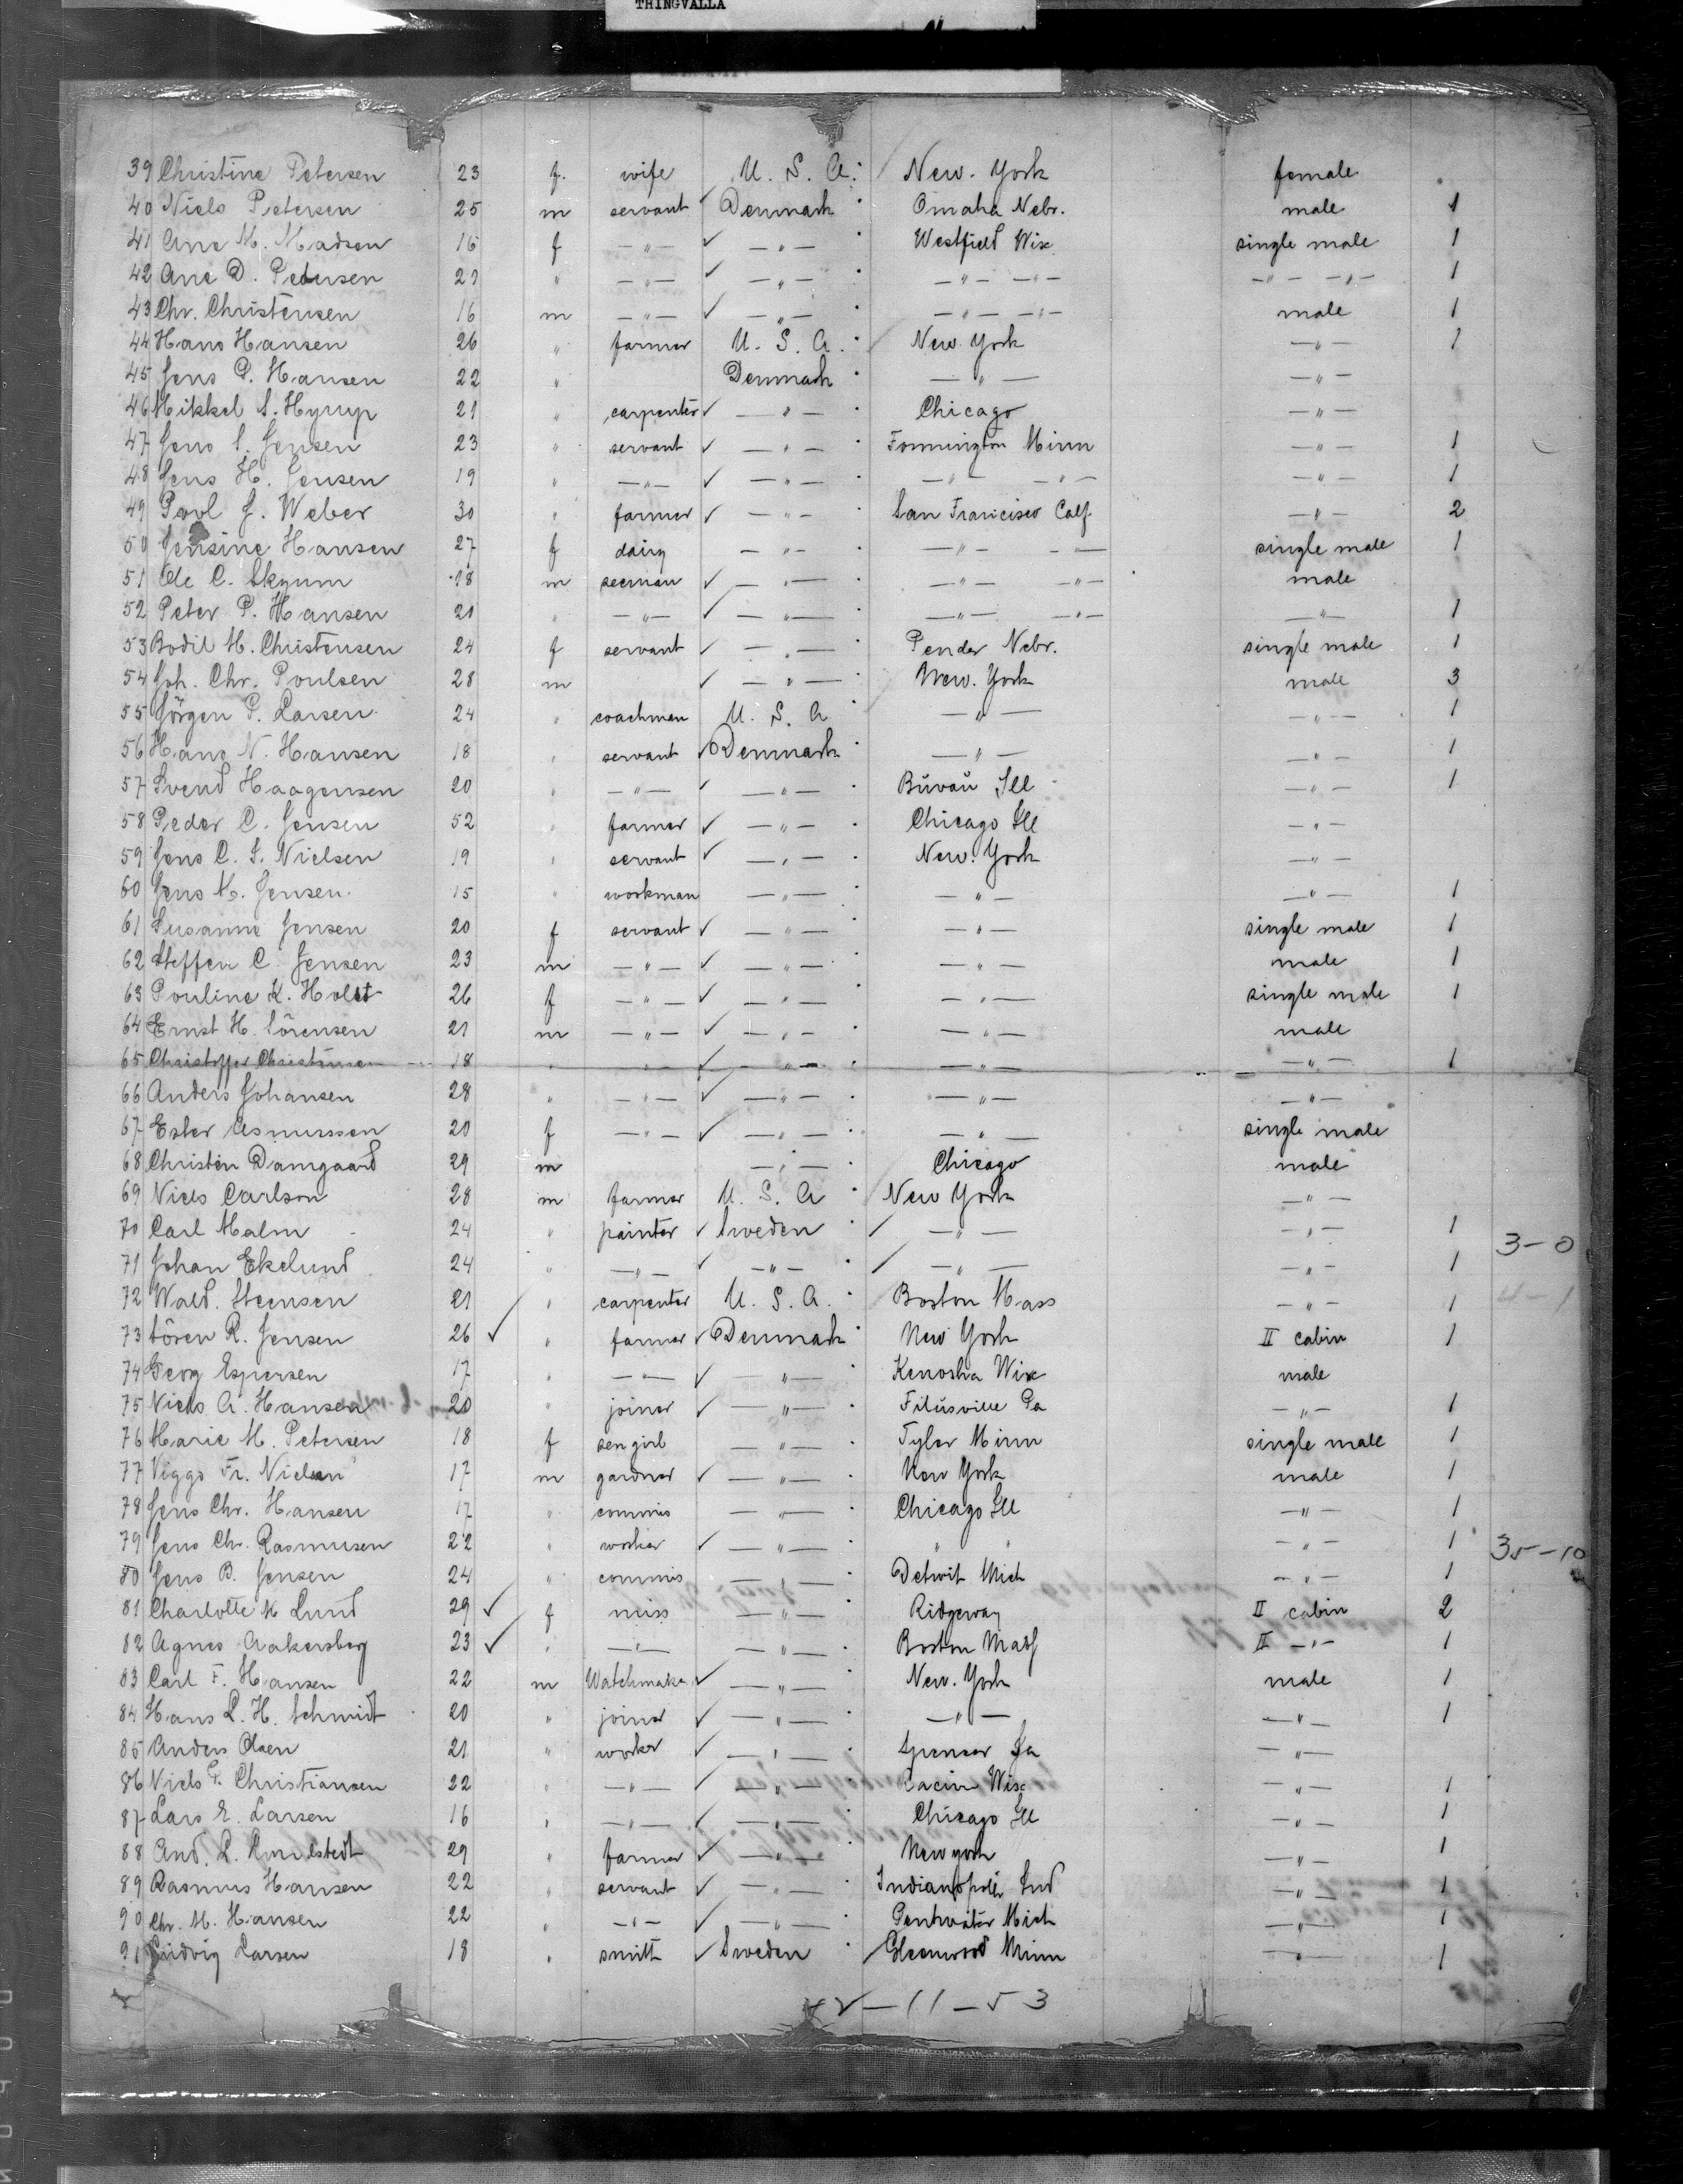 THINGVALLA
39 Christine Petersen 23 f. wife U. S. A. New. York female
40 Niels Petersen 25 m servant ✓ Denmark Omaha Nebr. male 1
41 Ane M. Madsen 16 f —"— ✓ —"— Westfield Wis single male 1
42 Ane D. Petersen 21 " —"— ✓ —"— —"— —"— —"— —"— 1
43 Chr. Christensen 16 m —"— ✓ —"— —"— —"— male 1
44 Hans Hansen 26 " farmer U. S. A. New York —"— 1
45 Jens P. Hansen 22 " Denmark —"— —"—
46 Mikkel S. Hyrup 21 " carpenter ✓ —"— Chicago —"—
47 Jens S. Jensen 23 " servant ✓ —"— Minn —"— 1
48 Jens H. Jensen 19 " —"— ✓ —"— —"— —"— —"— 1
49 Povl J. Weber 30 " farmer ✓ —"— San Francisco Calf. —"— 2
50 Jensine Hansen 27 f dairy —"— —"— —"— single male 1
51 Ole C. Skyum 18 m seeman ✓ —"— —"— —"— male
52 Peter P. Hansen 21 " —"— ✓ —"— —"— —"— —"— 1
53 Bodil M. Christensen 24 f servant ✓ —"— Pender Nebr. single male 1
54 Joh. Chr. Poulsen 28 m ✓ —"— New. York male 3
55 Jörgen P. Larsen 24 " coachman U. S. A —"— —"— 1
56 Hans N. Hansen 18 " servant ✓ Denmark —"— —"— 1
57 Svend Haagensen 20 " —"— ✓ —"— Ill —"— 1
58 Peder C. Jensen 52 " farmer ✓ —"— Chicago Ill —"—
59 Jens C. J. Nielsen 19 " servant ✓ —"— New. York —"—
60 Jens M. Jensen 15 " workman —"— —"— —"— 1
61 Susanne Jensen 20 f servant ✓ —"— —"— single male 1
62 Steffen C. Jensen 23 m —"— ✓ —"— —"— male 1
63 Pouline K. Holst 26 f —"— ✓ —"— —"— single male 1
64 Ernst H. Sörensen 21 m —"— ✓ —"— —"— male
65 Christoffer Christensen 18 " —"— ✓ —"— —"— —"— 1
66 Anders Johansen 28 " —"— ✓ —"— —"— —"—
67 Ester Asmussen 20 f —"— ✓ —"— —"— single male
68 Christen Damgaard 29 m —"— Chicago male
69 Niels Carlson 28 m farmer U. S. A New York —"—
70 Carl Malm 24 " painter ✓ Sweden —"— —"— 1
3-0
71 Johan Ekelund 24 " —"— ✓ —"— —"— —"— 1
72 Wald. Steensen 21 " carpenter U. S. A. Boston Mass —"— 1 4-1
73 Sören R. Jensen 26 ✓ " farmer ✓ Denmark New York II cabin 1
74 Georg Espersen 17 " —"— ✓ —"— Kenosha Wis male
75 Niels A. Hansen 20 " joiner ✓ —"— Titusville Pa —"— 1
76 Marie M. Petersen 18 f sengirl —"— Tyler Minn single male 1
77 Viggo Fr. Nielsen 17 m gardner ✓ —"— New York male 1
78 Jens Chr. Hansen 17 " commis —"— Chicago Ill —"— 1
79 Jens Chr. Rasmusen 22 " worker ✓ —"— " " —"— 1
35-10
80 Jens B. Jensen 24 " commis —"— Detroit Mich —"— 1
81 Charlotte M Lund 29 ✓ f miss —"— Ridgeway II cabin 2
82 Agnes Aakersberg 23 ✓ " —"— —"— Boston Mass II —"— 1
83 Carl F. Hansen 22 m Watchmaker ✓ —"— New. York male 1
84 Hans L. H. Schmidt 20 " joiner ✓ —"— —"— —"— 1
85 Anders Olsen 21 " worker ✓ —"— Spenser Ia —"—
86 Niels P. Christiansen 22 " —"— ✓ —"— Racine Wis —"— 1
87 Lars E. Larsen 16 " —"— ✓ —"— Chicago Ill —"— 1
88 And. L. 29 " farmer ✓ —"— New york —"— 1
89 Rasmus Hansen 22 " servant ✓ —"— Indianopolis Ind —"— 1
90 Chr. M. Hansen 22 " —"— ✓ —"— Pentwater Mich —"— 1
91 Ludvig Larsen 18 " smitt ✓ Sweden Gleenwood Minn —"— 1
42-11-53